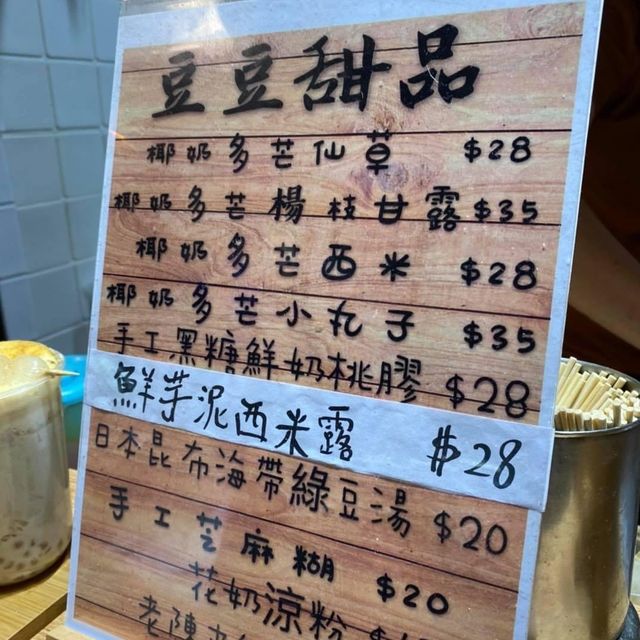 豆豆甜品
椰奶多芒仙草 $28
椰奶多芒楊枝甘露 $35
椰奶多芒西米 $28
椰奶多芒小丸子 $35
手工黑糖鮮奶桃膠 $28
鮮芋泥西米露 $28
日本昆布海帶綠豆湯 $20
手工芝麻糊 $20
花奶涼粉
老陳